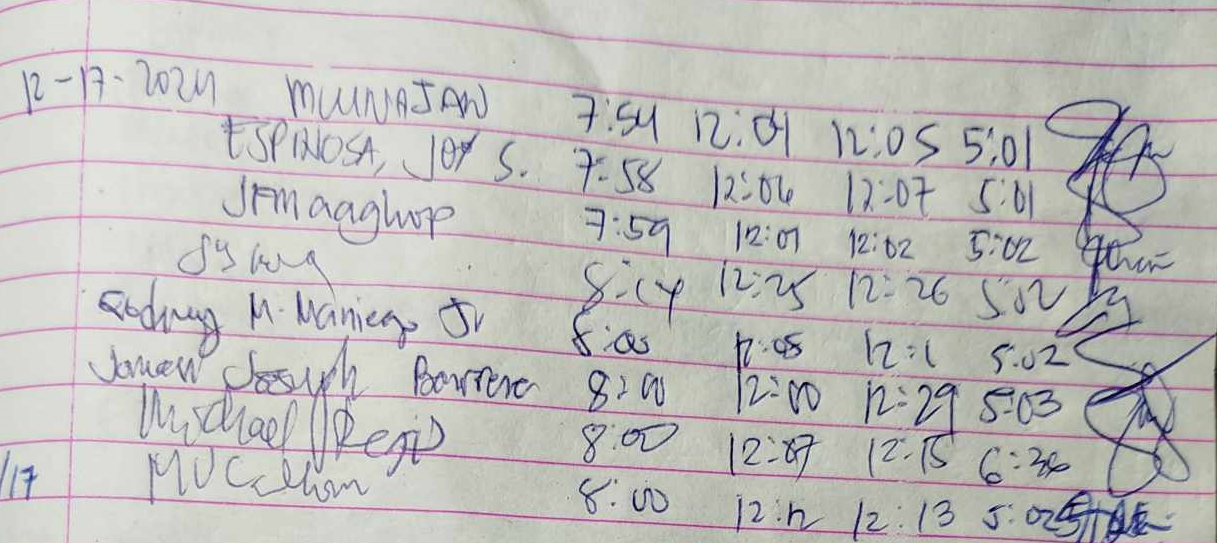 12-17-2024 MUUNAJAN 7:54 12:04 12:05 5:01
ESPINOSA, JOY S. 7:58 12:06 12:07 5:01
JFMaaghop 7:59 12:01 12:02 5:02
12:25 12:26 5:02
Rodney M. Maniego Jr 8:00 12:05 12:1 5:02
Joseph Barrera 8:00 12:00 12:29 5:03
Michael Regid 8:00 12:07 12:15 6:36
/17 8:00 12:12 12:13 5:02